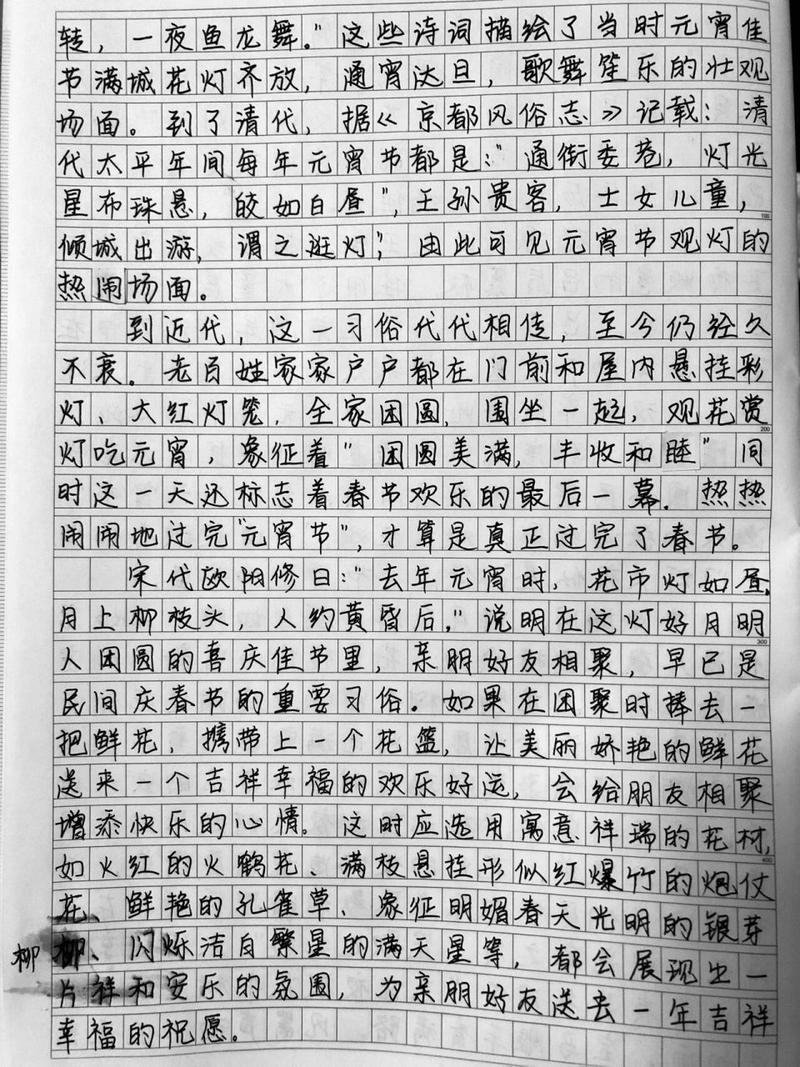 转，一夜鱼龙舞。"这些诗词描绘了当时元宵佳
节满城花灯齐放，通宵达旦，歌舞笙乐的壮观
场面。到了清代，据《京都风俗志》记载：清
代太平年间每年元宵节都是："通衔委巷，灯光
星布珠悬，皎如白昼"，王孙贵客，士女儿童，
倾城出游，谓之逛灯"，由此可见元宵节观灯的
热闹场面。
到近代，这一习俗代代相传，至今仍经久
不衰。老百姓家家户户都在门前和屋内悬挂彩
灯、大红灯笼，全家团圆，围坐一起，观花赏
灯吃元宵，象征着"团圆美满，丰收和睦"同
时这一天还标志着春节欢乐的最后一幕．热热
闹闹地过完"元宵节"，才算是真正过完了春节。
宋代欧阳修曰："去年元宵时，花市灯如昼。
月上柳枝头，人约黄昏后。"说明在这灯好月明
人团圆的喜庆佳节里，亲朋好友相聚，早已是
民间庆春节的重要习俗．如果在团聚时捧去一
把鲜花，携带上一个花篮，让美丽娇艳的鲜花
送来一个吉祥幸福的欢乐好运，会给朋友相聚
增添快乐的心情。这时应选用寓意祥瑞的花材，
如火红的火鹤花、满枝悬挂形似红爆竹的炮仗
花、鲜艳的孔雀草、象征明媚春天光明的银芽
柳 柳、闪烁洁白繁星的满天星等，都会展现出一
片祥和安乐的氛围，为亲朋好友送去一年吉祥
幸福的祝愿。
100
200
300
400